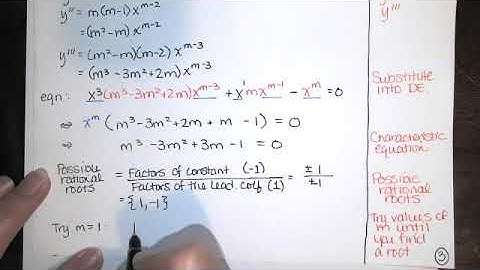 y'' = m(m-1)x^{m-2}
= (m²-m)x^{m-2}
y''' = (m²-m)(m-2)x^{m-3}
= (m³-3m²+2m)x^{m-3}
eqn: x³(m³-3m²+2m)x^{m-3} + x'mx^{m-1} - x^m = 0
⇔ x^m (m³-3m²+2m + m -1) = 0
⇔ m³-3m²+3m-1 = 0
Possible rational roots = Factors of constant (-1) / Factors of the lead. coef (1) = ±1 / ±1
= {1,-1}
Try m=1:
y'''
Substitute
into DE.
Characteristic
equation.
Possible
rational
roots
Try values of
m until
you find
a root
3